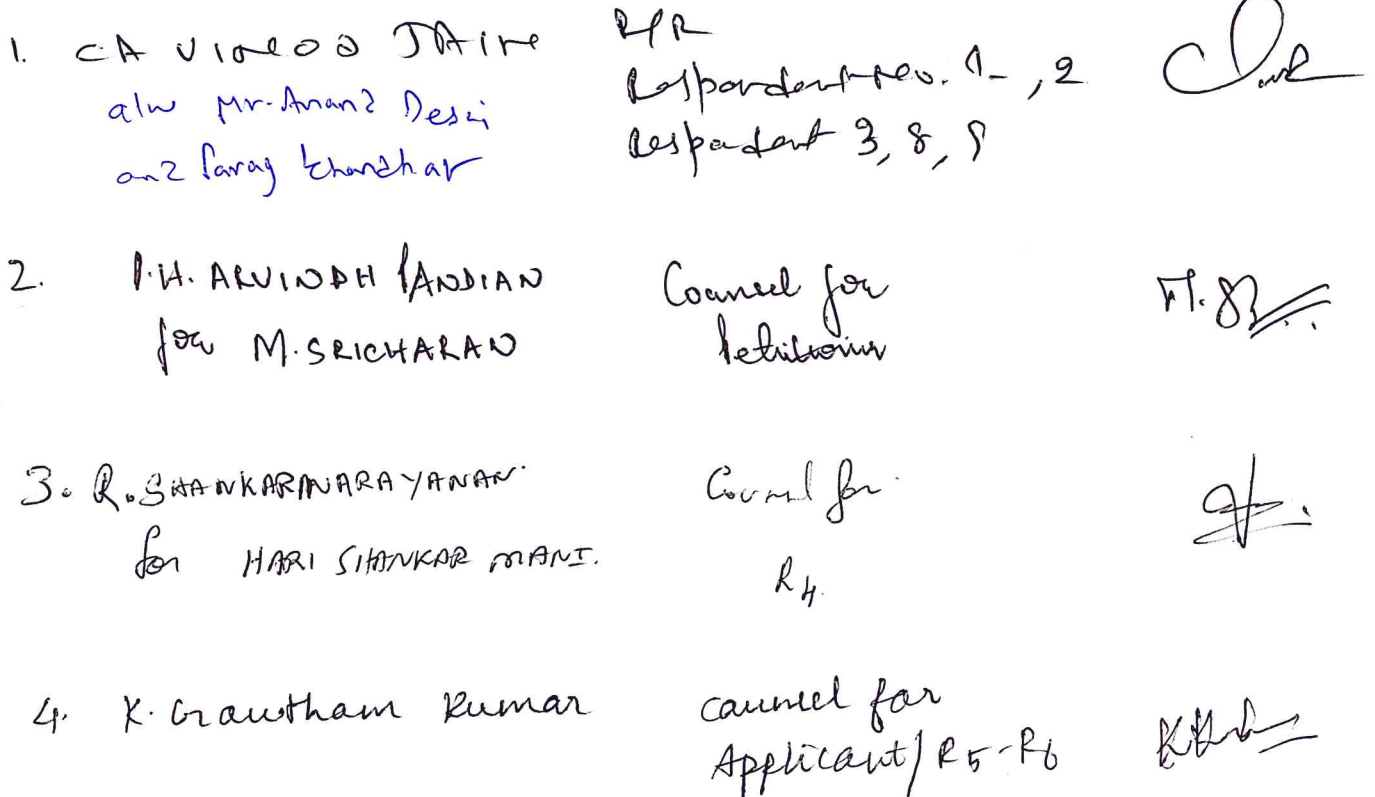 1. CA VINOD JAIN
a/w Mr. Anand Desai
and Parag Khandhar
Respondent no. 1, 2
Respondent 3, 8, 9
2. P.H. ARVINDH PANDIAN
for M. SRICHARAN
Counsel for
Petitioner
3. R. SHANKARANARAYANAN
for HARI SHANKAR MANI.
Counsel for
R4.
4. K. Gautham Kumar
counsel for
Applicant/R5-R6